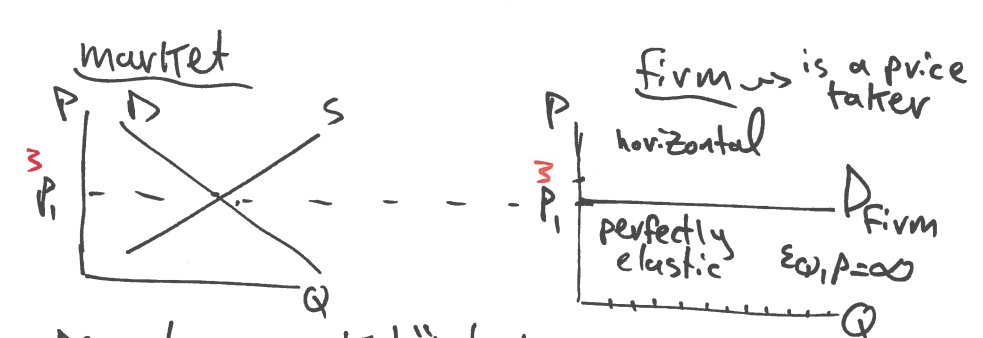 market
P D S
3
P₁
Q
firm ⤳ is a price
taker
P
horizontal
3
P₁ D Firm
perfectly
elastic εQ,P=∞
Q